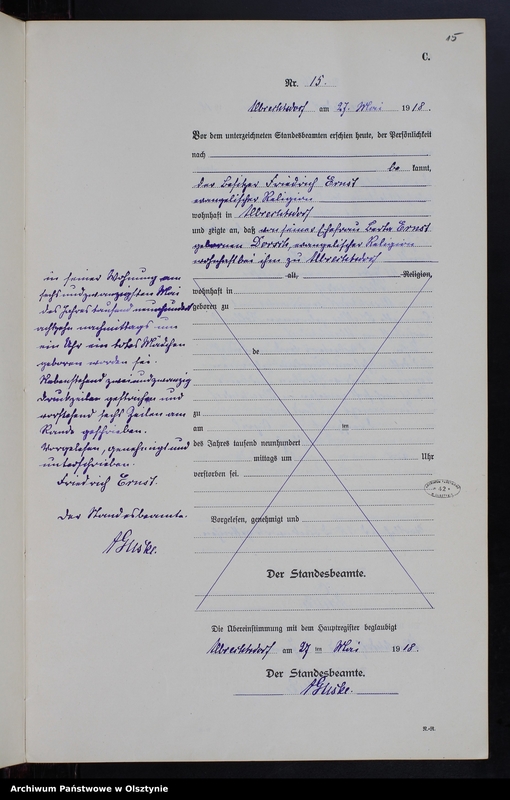 15
C.
Nr. 15.
Albrechtsdorf am 27. Mai 1918.
Vor dem unterzeichneten Standesbeamten erschien heute, der Persönlichkeit
nach
be kannt,
der Besitzer Friedrich Ernst
evangelischer Religion
wohnhaft in Albrechtsdorf
und zeigte an, daß von seiner Ehefrau Berta Ernst
gebornen evangelischer Religion
wohnhaft bei ihm zu Albrechtsdorf
alt, Religion,
wohnhaft in
geboren zu
de
zu
am ten
des Jahres tausend neunhundert
mittags um Uhr
verstorben sei.
Vorgelesen, genehmigt und
Der Standesbeamte.
in seiner Wohnung am
sechsundzwanzigsten Mai
des Jahres tausend neunhundert
achtzehn nachmittags um
ein Uhr ein totes Mädchen
geboren worden sei.
Nebenstehend zweiundzwanzig
Druckzeilen gestrichen und
vorstehend sechs Zeilen am
Rande geschrieben.
Vorgelesen, genehmigt und
unterschrieben.
Friedrich Ernst.
Der Standesbeamte.
Die Übereinstimmung mit dem Hauptregister beglaubigt
Albrechtsdorf am 27 ten Mai 1918.
Der Standesbeamte.
Archiwum Państwowe w Olsztynie